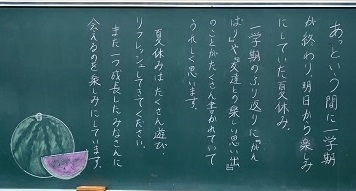 あっという間に一学期
が終わり、明日から楽しみ
にしていた夏休み。
一学期のふり返りに『がん
ばし』や『友達との楽しい思い出』
のことがたくさん書かれていて
うれしく思います。
夏休みはたくさん遊び
リフレッシュしてきてください。
また一つ成長したみなさんに
会えるのを楽しみにしています。